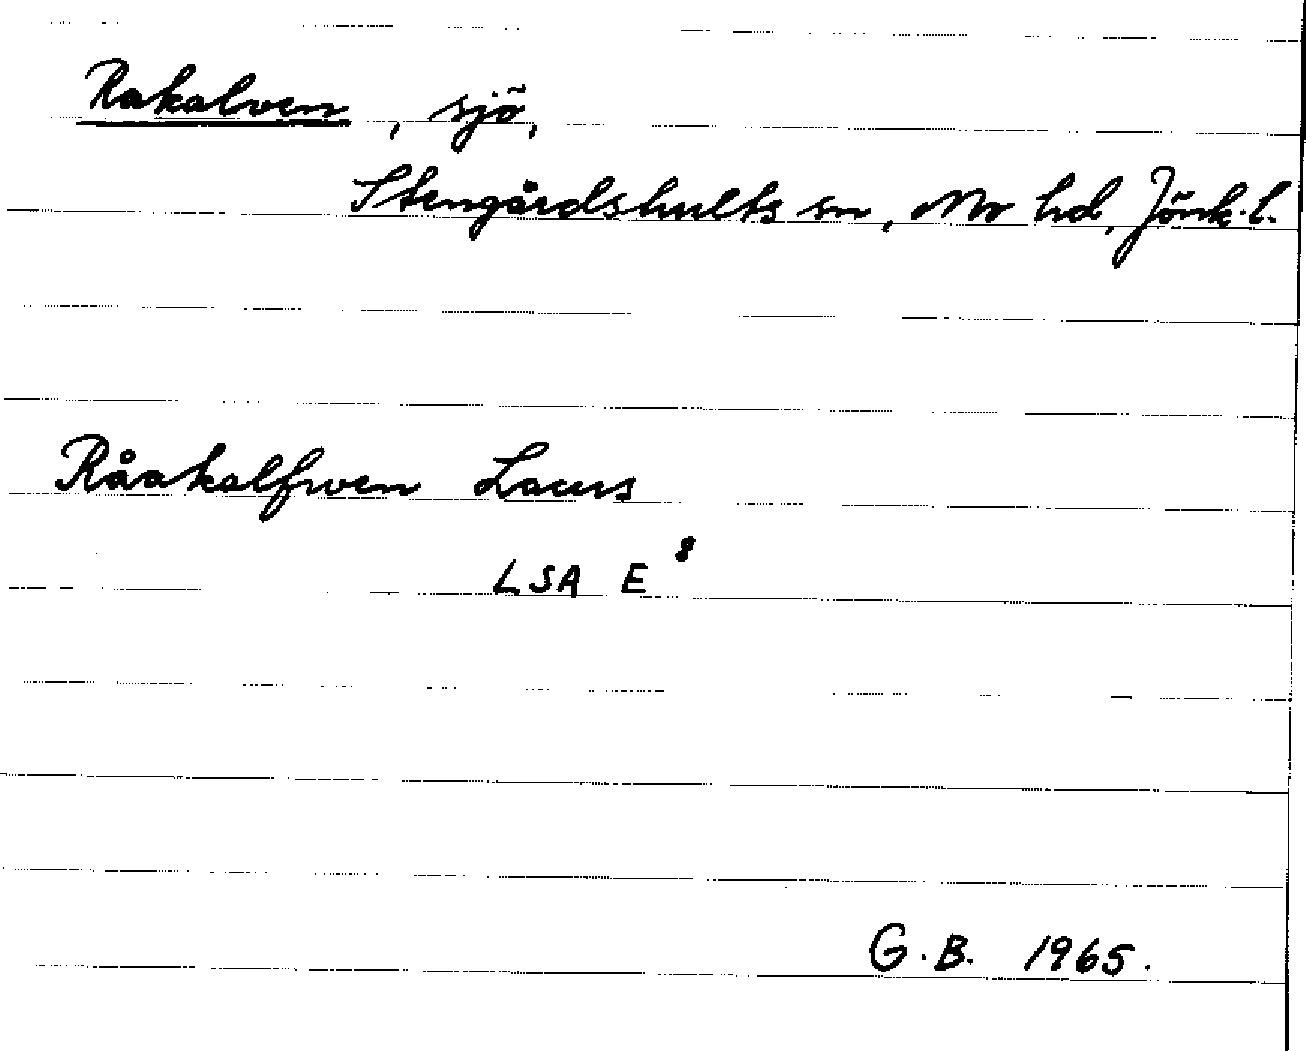 Rakalven, sjö,
Stengårdshults sn, Mo hd, Jönk. l.
Råakalfwen Lacus
LSA E⁸
G.B. 1965.